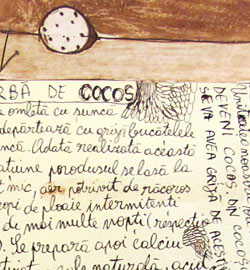 RBA DE COCOS
omletă cu sunca
departează cu grijă bucatelele
ncă. Adată realizata această
atiune porodusul se lasă la
t mic, aer potrivit de răcoros
ropi de ploaie intermitenti
de mai multe nopti (respectiv
). Se prepară apoi calciu
naturală, acid
DEVENI COCOS, DIN COCO
SE VA AVEA GRIJA DE ACEST